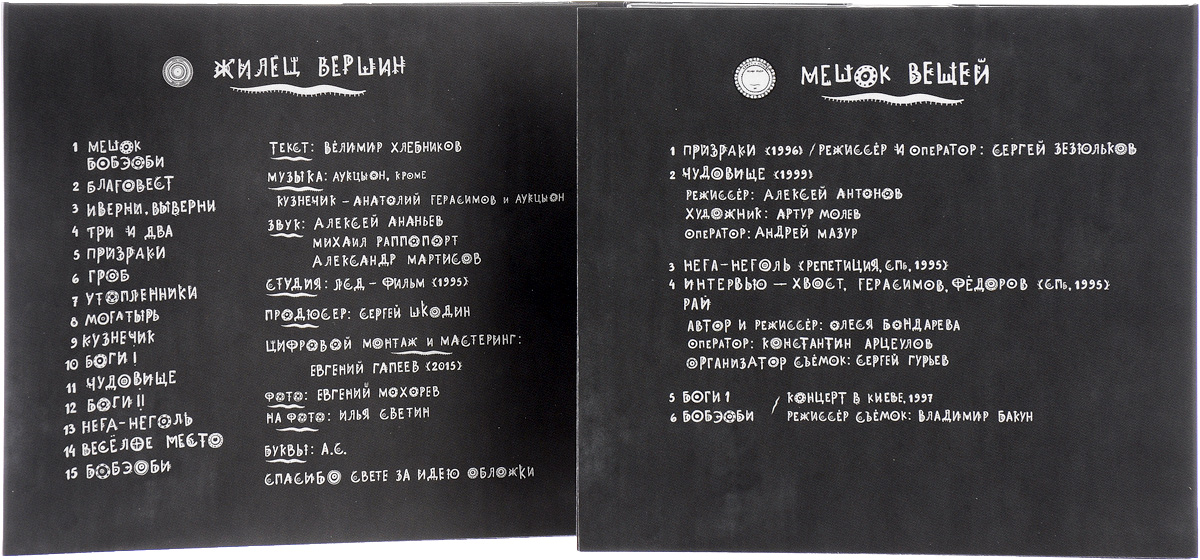 ЖИЛЕЦ ВЕРШИН
1 МЕШОК
БОБЭОБИ
2 БЛАГОВЕСТ
3 ИВЕРНИ, ВЫВЕРНИ
4 ТРИ И ДВА
5 ПРИЗРАКИ
6 ГРОБ
7 УТОПЛЕННИКИ
8 МОГАТЫРЬ
9 КУЗНЕЧИК
10 БОГИ I
11 ЧУДОВИЩЕ
12 БОГИ II
13 НЕГА-НЕГОЛЬ
14 ВЕСЁЛОЕ МЕСТО
15 БОБЭОБИ
ТЕКСТ: ВЕЛИМИР ХЛЕБНИКОВ
МУЗЫКА: АУКЦЫОН, КРОМЕ
КУЗНЕЧИК – АНАТОЛИЙ ГЕРАСИМОВ И АУКЦЫОН
ЗВУК: АЛЕКСЕЙ АНАНЬЕВ
МИХАИЛ РАППОПОРТ
АЛЕКСАНДР МАРТИСОВ
СТУДИЯ: ЛСД – ФИЛЬМ (1995)
ПРОДЮСЕР: СЕРГЕЙ ШКОДИН
ЦИФРОВОЙ МОНТАЖ И МАСТЕРИНГ:
ЕВГЕНИЙ ГАПЕЕВ (2015)
ФОТО: ЕВГЕНИЙ МОХОРЕВ
НА ФОТО: ИЛЬЯ СВЕТИН
БУКВЫ: А.С.
СПАСИБО СВЕТЕ ЗА ИДЕЮ ОБЛОЖКИ
МЕШОК ВЕЩЕЙ
1 ПРИЗРАКИ (1996) / РЕЖИССЁР И ОПЕРАТОР: СЕРГЕЙ ЗЕЗЮЛЬКОВ
2 ЧУДОВИЩЕ (1999)
РЕЖИССЁР: АЛЕКСЕЙ АНТОНОВ
ХУДОЖНИК: АРТУР МОЛЕВ
ОПЕРАТОР: АНДРЕЙ МАЗУР
3 НЕГА-НЕГОЛЬ (РЕПЕТИЦИЯ, СПЬ, 1995)
4 ИНТЕРВЬЮ — ХВОСТ, ГЕРАСИМОВ, ФЁДОРОВ (СПЬ, 1995)
РАЙ
АВТОР И РЕЖИССЁР: ОЛЕСЯ БОНДАРЕВА
ОПЕРАТОР: КОНСТАНТИН АРЦЕУЛОВ
ОРГАНИЗАТОР СЪЁМОК: СЕРГЕЙ ГУРЬЕВ
5 БОГИ 1 / КОНЦЕРТ В КИЕВЕ, 1997
6 БОБЭОБИ РЕЖИССЁР СЪЁМОК: ВЛАДИМИР БАКУН